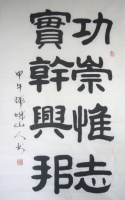 功崇惟志
實幹興邦
甲午
山人書